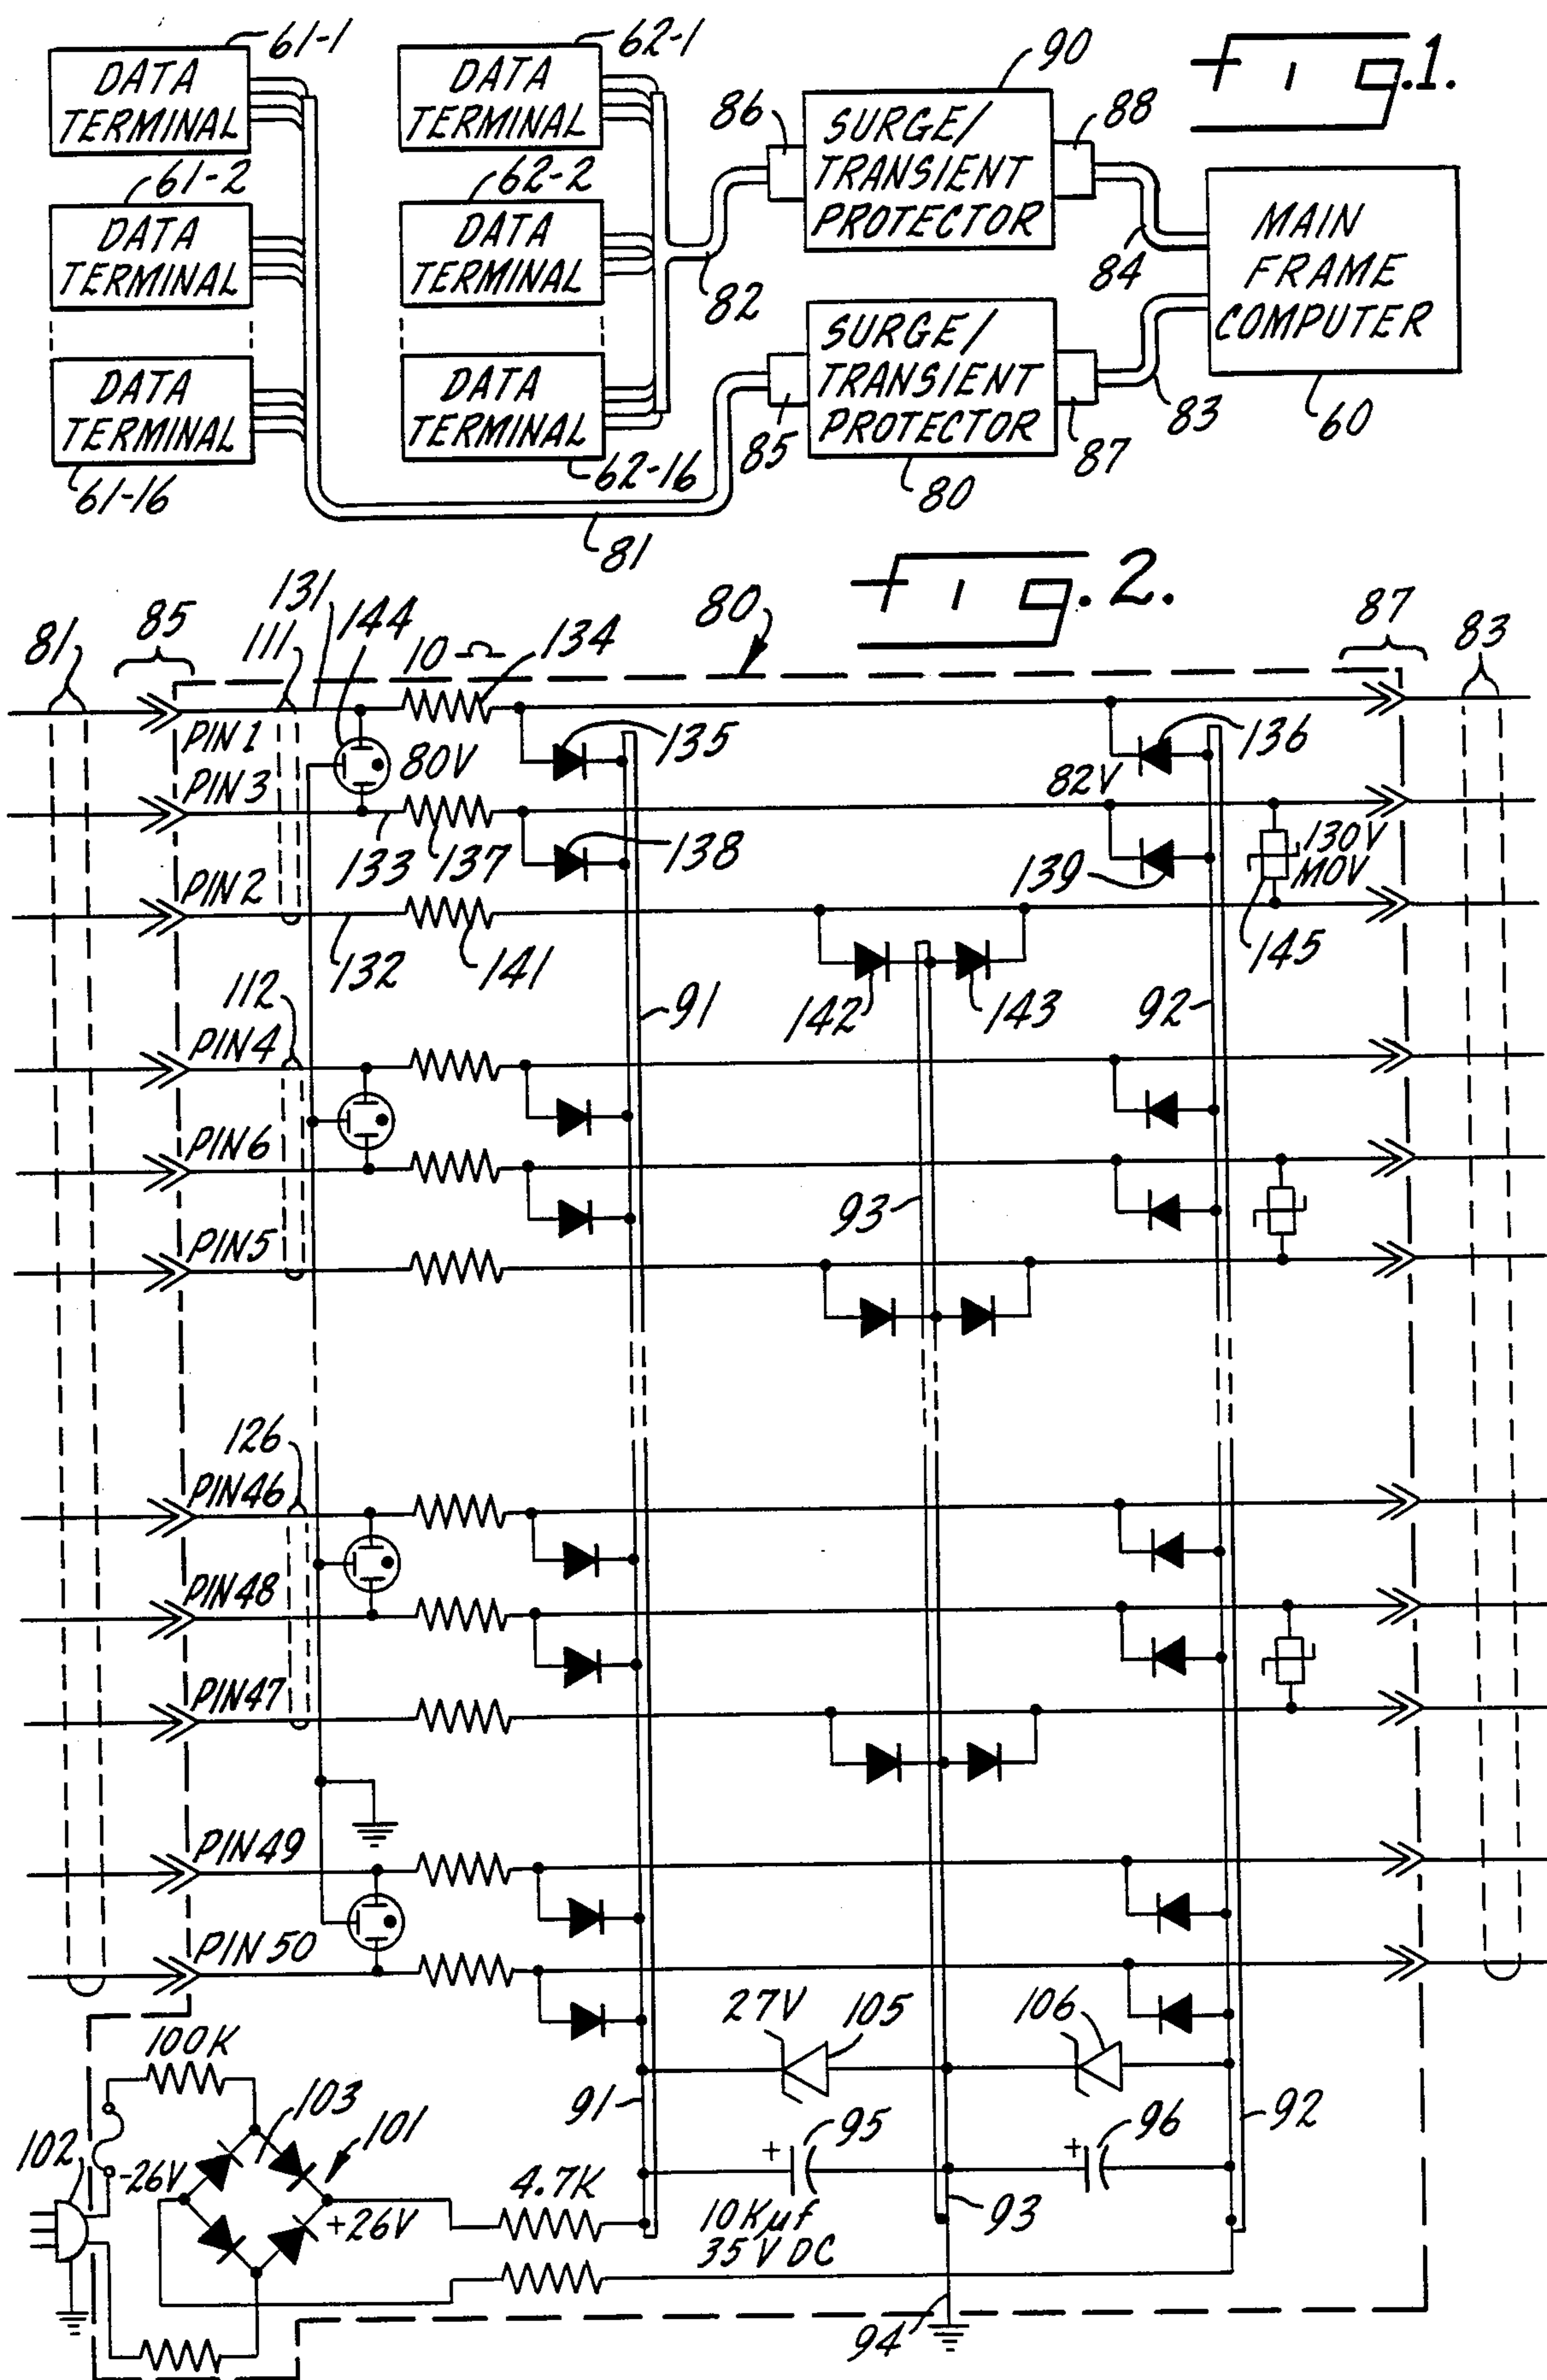 fig.1.
61-1
DATA
TERMINAL
61-2
DATA
TERMINAL
DATA
TERMINAL
61-16
62-1
DATA
TERMINAL
62-2
DATA
TERMINAL
DATA
TERMINAL
62-16
81
82
86
90
SURGE/
TRANSIENT
PROTECTOR
88
84
85
SURGE/
TRANSIENT
PROTECTOR
80
87
83
MAIN
FRAME
COMPUTER
60
fig.2.
80
81
85
111
131
144
10 Ω
134
87
83
PIN 1
80V
135
136
PIN 3
133
137
138
82V
139
130V
MOV
PIN 2
132
141
142
143
145
112
91
92
PIN 4
PIN 6
93
PIN 5
126
PIN 46
PIN 48
PIN 47
PIN 49
PIN 50
27V
105
106
100K
103
101
102
-26V
+26V
4.7K
91
+
95
+
96
92
10Kµf
35 VDC
93
94